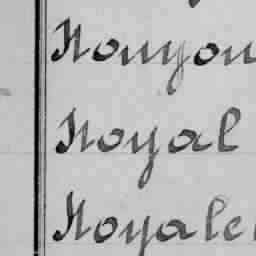 Nouyon
Noyal
Noyale